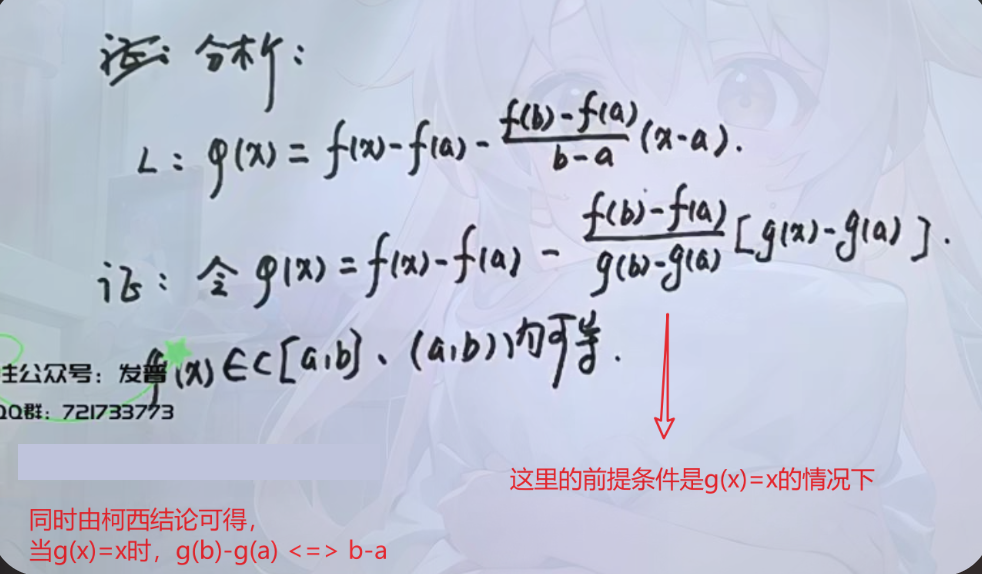 证：分析：
L：φ(x) = f(x) - f(a) - \frac{f(b) - f(a)}{b - a}(x - a).
证：令 φ(x) = f(x) - f(a) - \frac{f(b) - f(a)}{g(b) - g(a)}[g(x) - g(a)].
φ(x) ∈ C[a,b]、(a,b)内可导.
注公众号：发普
QQ群：721733773
这里的前提条件是g(x)=x的情况下
同时由柯西结论可得，
当g(x)=x时，g(b)-g(a) <=> b-a